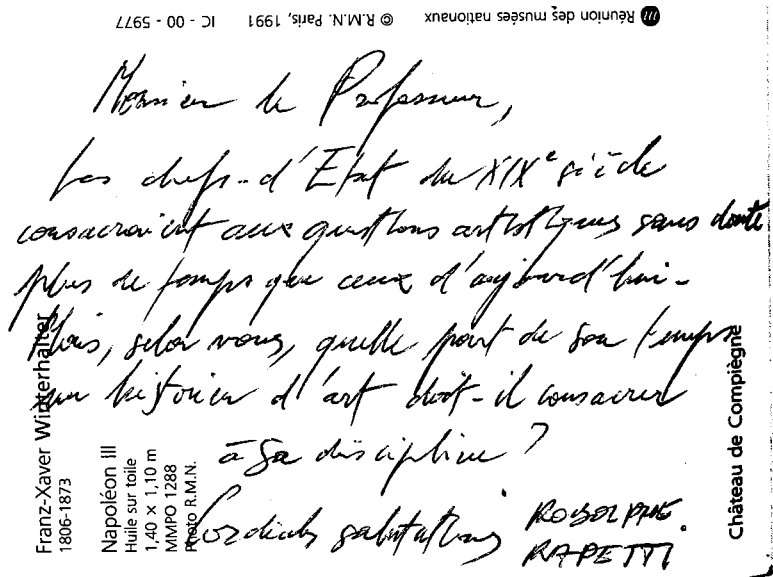 Réunion des musées nationaux
© R.M.N. Paris, 1991
IC - 00 - 5977
Monsieur le Professeur,
Les chefs-d'Etat du XIXe siècle
consacraient aux questions artistiques sans doute
plus de temps que ceux d'aujourd'hui.
Mais, selon vous, quelle part de son temps
un historien d'art doit-il consacrer
à sa discipline ?
Cordiales salutations
RODOLPHE
RAPETTI.
Franz-Xaver Winterhalter
1806-1873
Napoléon III
Huile sur toile
1,40 x 1,10 m
MMPO 1288
Photo R.M.N.
Château de Compiègne